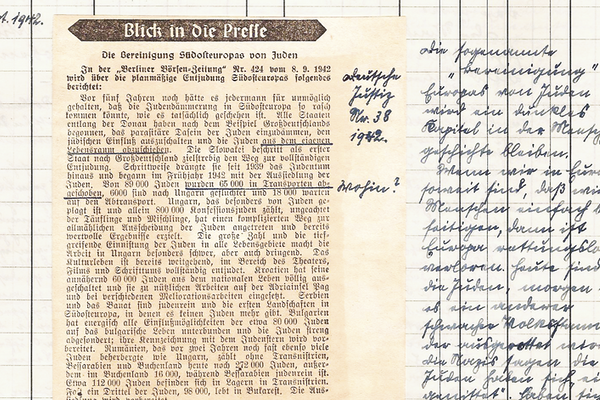 1942.
Blick in die Presse
Die Bereinigung Südosteuropas von Juden
In der „Berliner Börsen-Zeitung“ Nr. 424 vom 8. 9. 1942
wird über die planmäßige Entjudung Südosteuropas folgendes
berichtet:
Vor fünf Jahren noch hätte es jedermann für unmöglich
gehalten, daß die Judendämmerung in Südosteuropa so rasch
kommen könnte, wie es tatsächlich geschehen ist. Alle Staaten
entlang der Donau haben nach dem Beispiel Großdeutschlands
begonnen, das parasitäre Dasein der Juden einzudämmen, den
jüdischen Einfluß auszuschalten und die Juden aus dem eigenen
Lebensraum abzuschieben. Die Slowakei beschritt als erster
Staat nach Großdeutschland zielstrebig den Weg zur vollständigen
Entjudung. Schrittweise drängte sie seit 1939 das Judentum
hinaus und begann im Frühjahr 1942 mit der Aussiedlung der
Juden. Von 89 000 Juden wurden 65 000 in Transporten ab-
geschoben, 6000 sind nach Ungarn geflüchtet und 18 000 warten
auf den Abtransport. Ungarn, das besonders von Juden ge-
plagt ist und allein 800 000 Konfessionsjuden zählt, ungeachtet
der Täuflinge und Mischlinge, hat einen komplizierten Weg zur
allmählichen Ausscheidung der Juden angetreten und bereits
wertvolle Ergebnisse erzielt. Die große Zahl und die tief-
greifende Einnistung der Juden in alle Lebensgebiete macht die
Arbeit in Ungarn besonders schwer, aber auch dringend. Das
Kulturleben ist bereits weitgehend, im Bereich des Theaters,
Films und Schrifttums vollständig entjudet. Kroatien hat seine
annähernd 60 000 Juden aus dem nationalen Leben völlig aus-
geschaltet und sie zu nützlichen Arbeiten auf der Adriainsel Pag
und bei verschiedenen Meliorationsarbeiten eingesetzt. Serbien
und das Banat sind judenrein und die ersten Landschaften in
Südosteuropa, in denen es keinen Juden mehr gibt. Bulgarien
hat energisch alle Einflußmöglichkeiten der etwa 80 000 Juden
auf das bulgarische Leben unterbunden und die Juden streng
abgesondert; ihre Kennzeichnung mit dem Judenstern wird vor-
bereitet. Rumänien, das vor zwei Jahren noch fast ebenso viele
Juden beherbergte wie Ungarn, zählt ohne Transnistrien,
Bessarabien und Buchenland heute noch 272 000 Juden, außer-
dem im Buchenland 16 000, während Bessarabien judenrein ist.
Etwa 112 000 Juden befinden sich in Lagern in Transnistrien.
Fast ein Drittel der Juden, 98 000, lebt in Bukarest. Die Aus-
Deutsche
Justiz
Nr. 38
1942.
Wohin?
Die sogenannte
„Bereinigung“
Europas von Juden
wird ein dunkles
Kapitel in der Mensch
geschichte bleiben.
Wenn wir in Euro
soweit sind, daß wi
Menschen einfach b
seitigen, dann ist
Europa rettungslo
verloren. Heute sind
die Juden, morgen
es ein anderer
schwache Volksstamm
der ausgerottet
die Nazis sagen die
Juden hätten sich